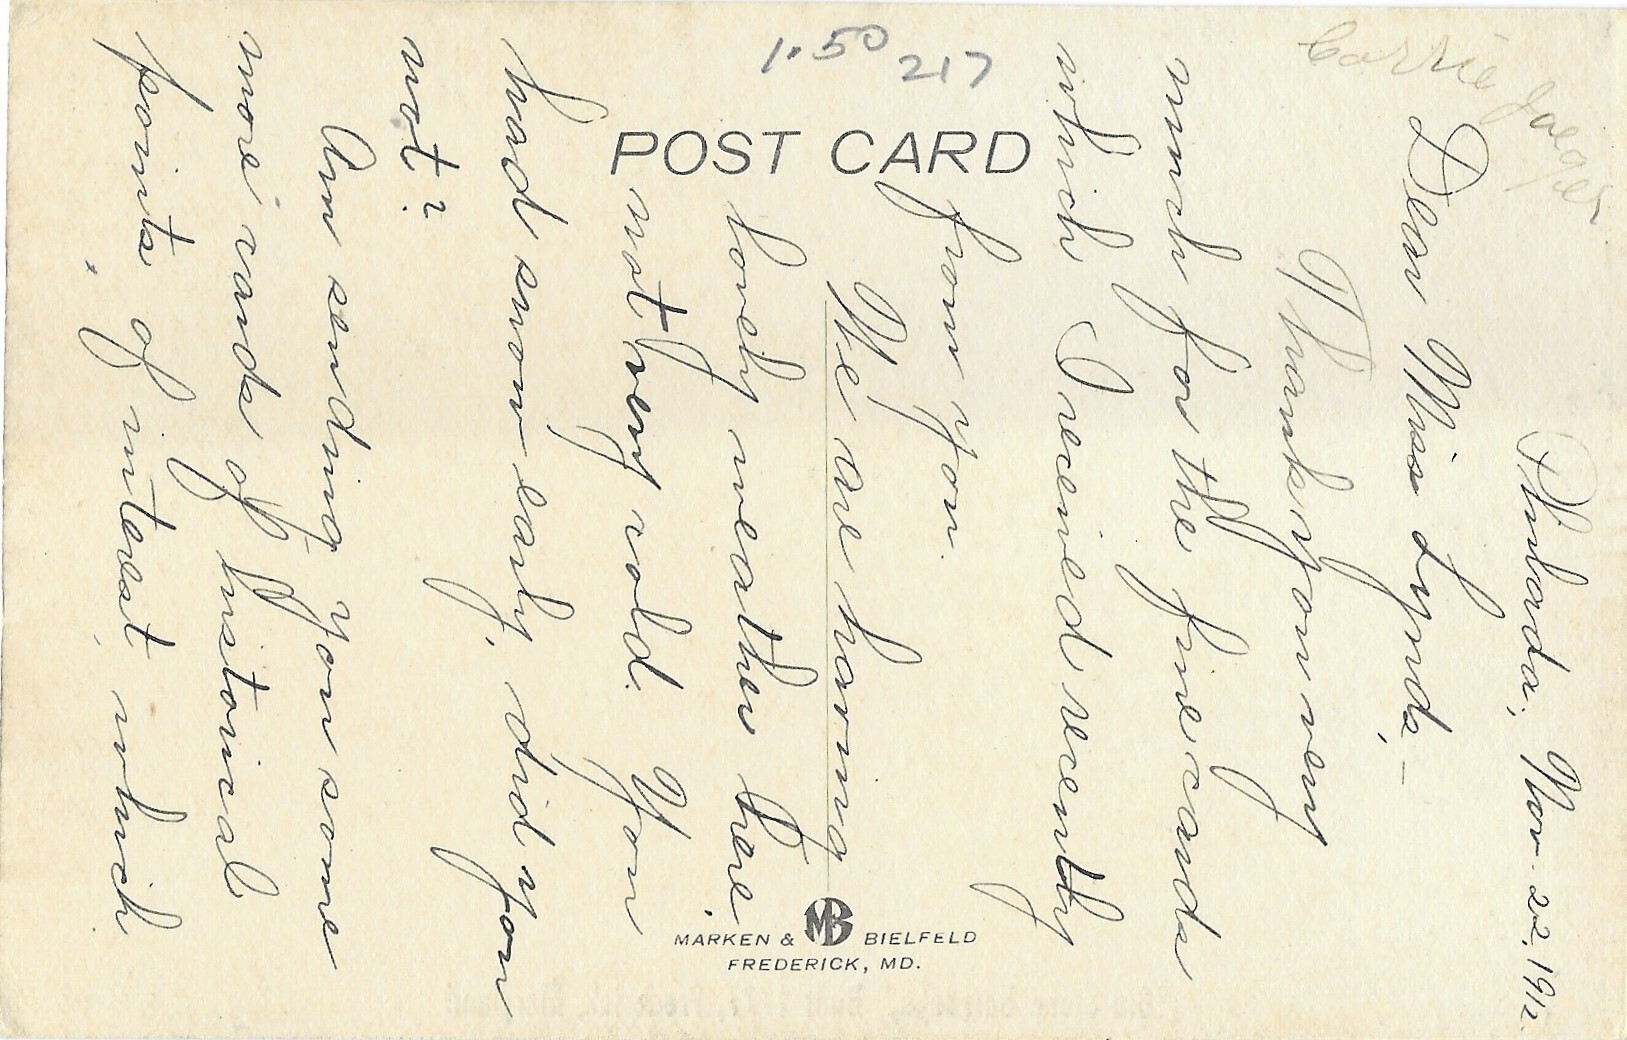 1.50 217
Carrie Jaeger
POST CARD
Philada, Nov. 22, 1912.
Dear Miss Lynds, -
Thank you very
much for the fine cards
which I received recently
from you.
We are having
lovely weather here,
not very cold. You
had snow early, did you
not?
Am sending you some
more cards of historical
points of interest which
MARKEN & MB BIELFELD
FREDERICK, MD.